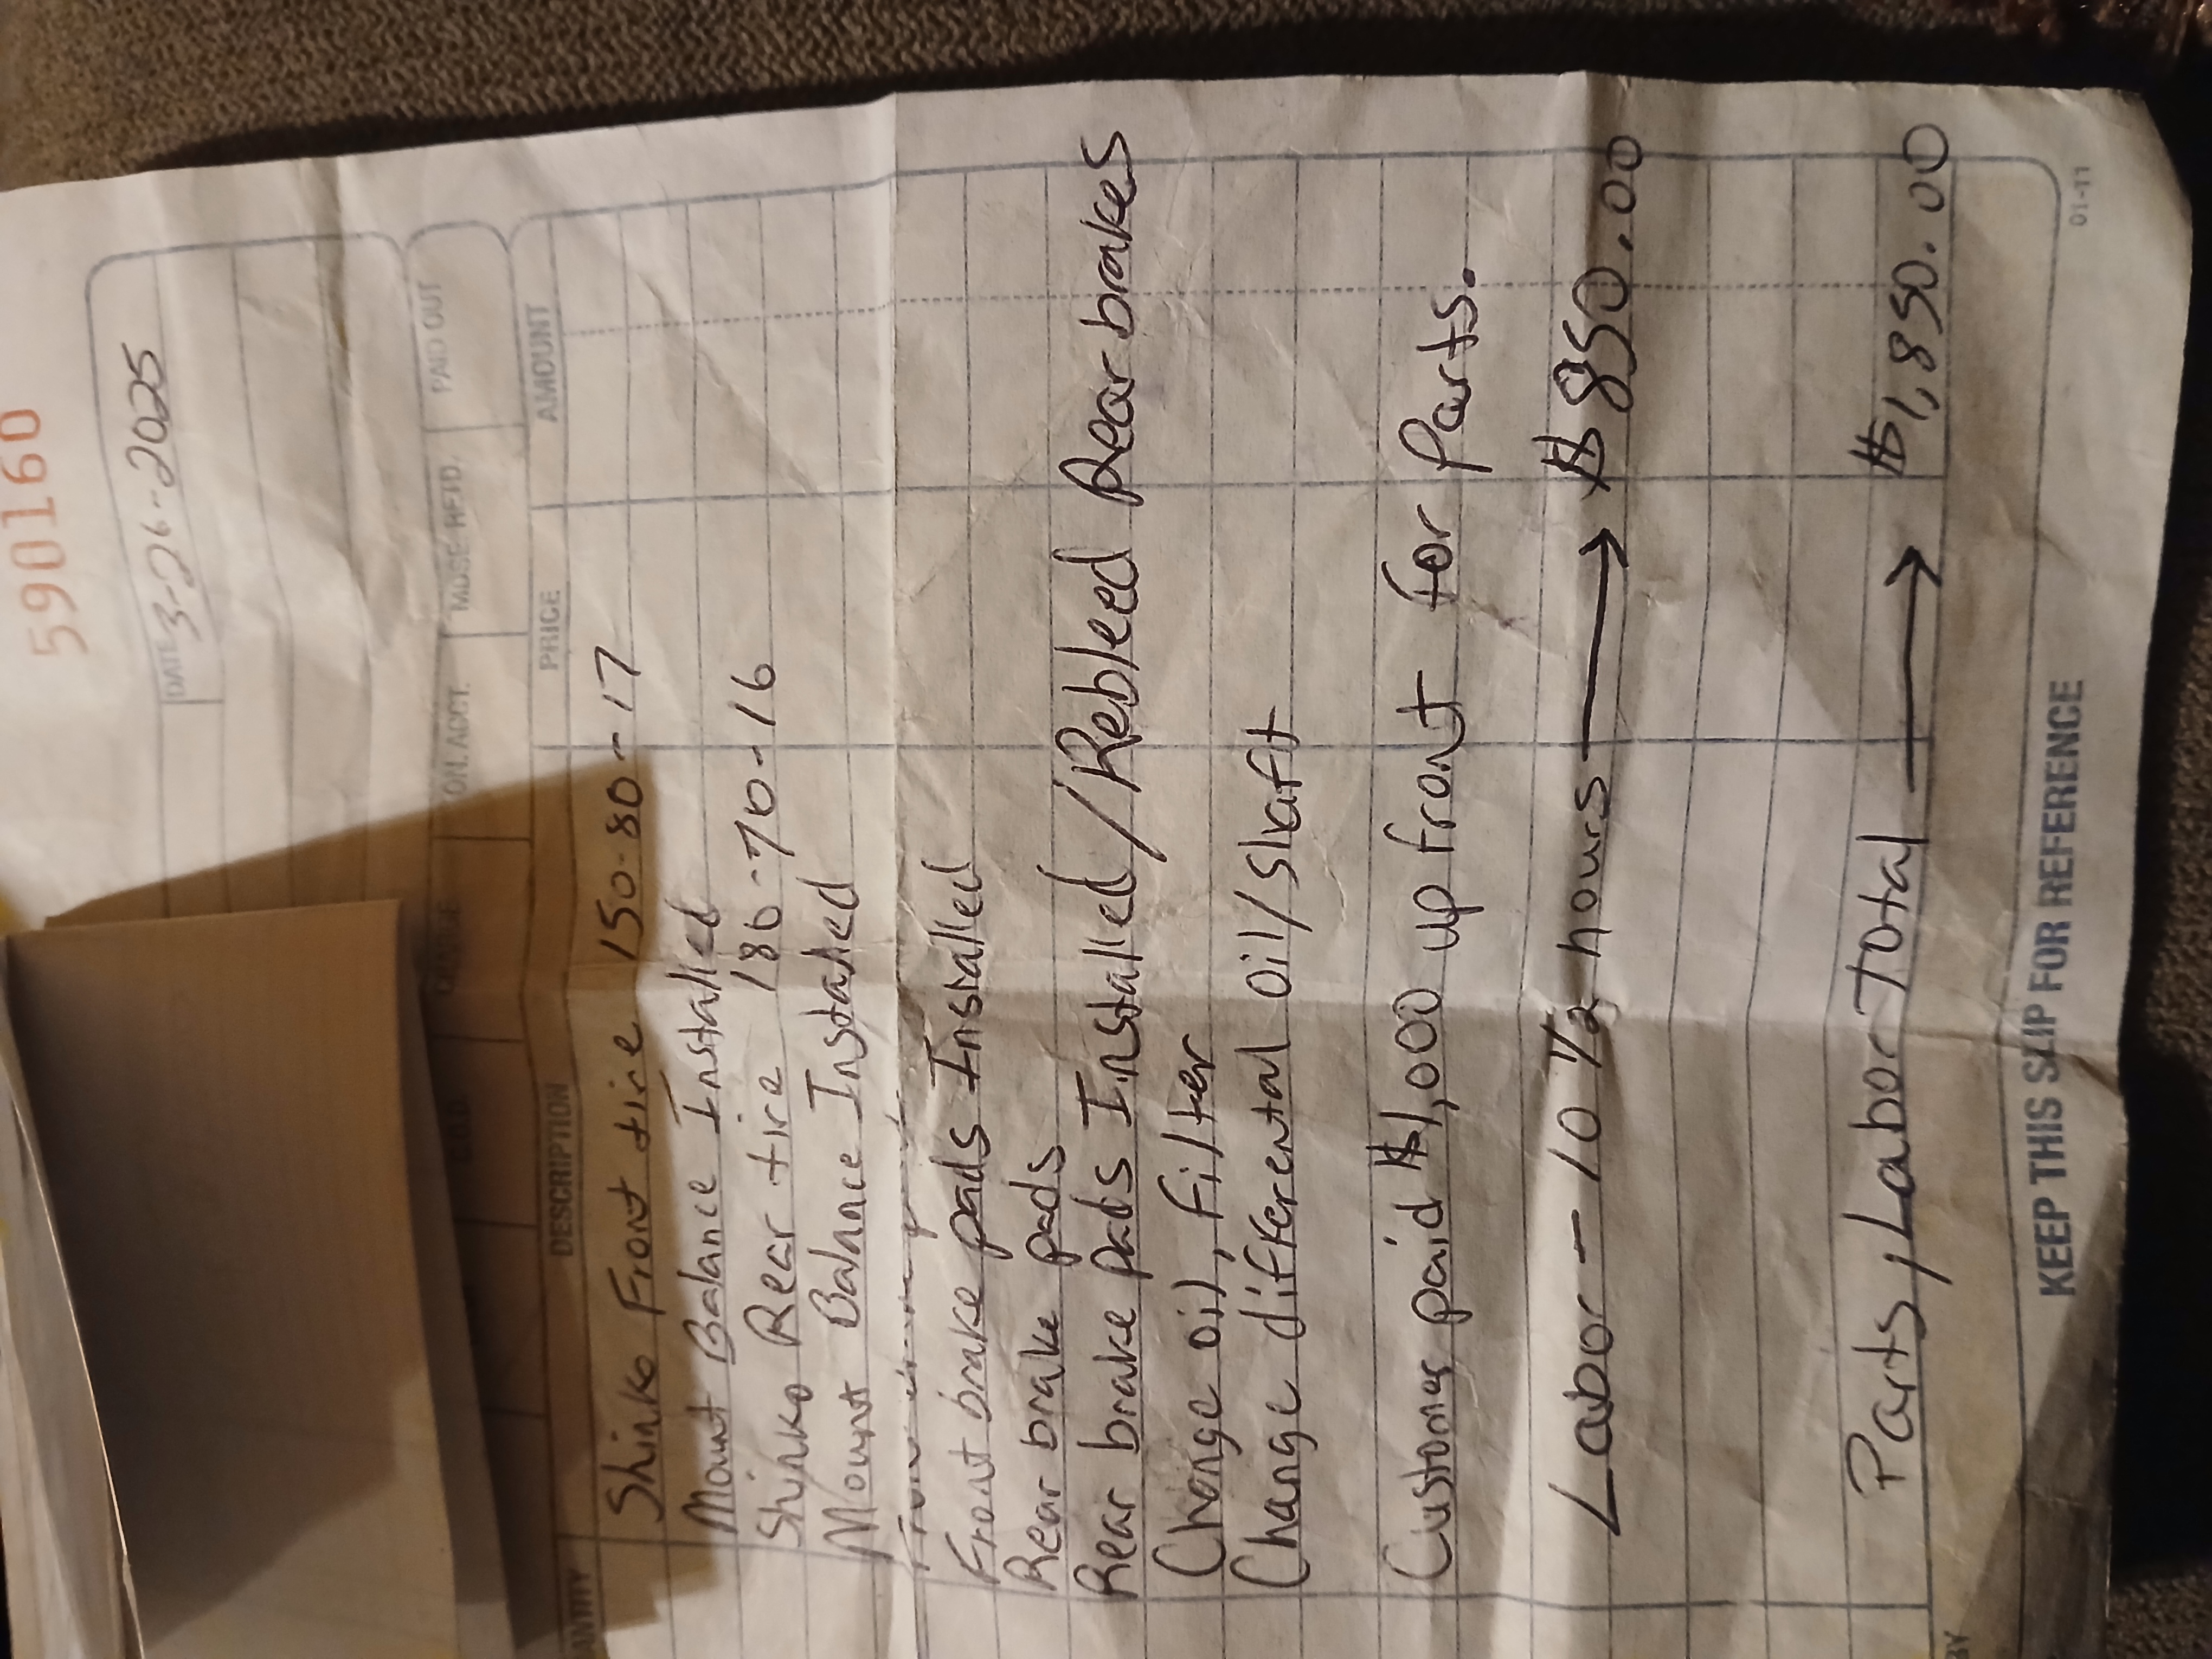 590160
DATE 3-26-2025
MDSE RETD. PAID OUT
DESCRIPTION PRICE AMOUNT
Shinko Front tire 150-80-17
Mount Balance Installed
Shinko Rear tire 180-70-16
Mount Balance Installed
Front brake pads Installed
Rear brake pads
Rear brake pads Installed/Rebleed Rear brakes
Change oil, filter
Change differental oil/shaft
Customer paid $1,000 up front for Parts.
Labor - 10 1/2 hours → $850.00
Parts, Labor Total → $1,850.00
KEEP THIS SLIP FOR REFERENCE
01-11